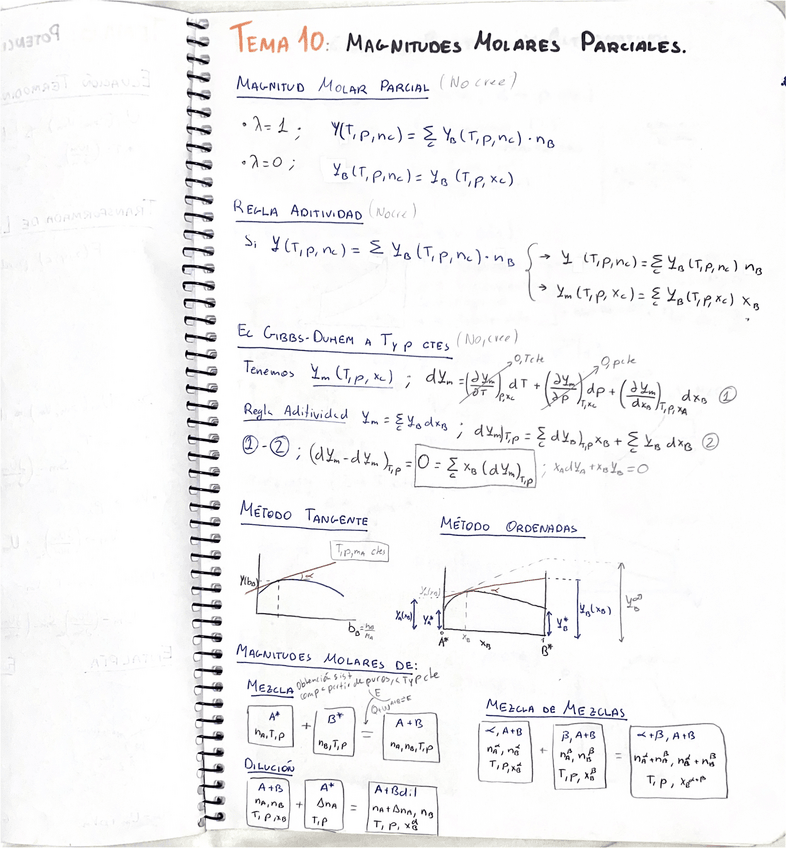 TEMA 10: MAGNITUDES MOLARES PARCIALES.
MAGNITUD MOLAR PARCIAL (No cree)
• λ=1 ; Y(T,p,nc) = Σc YB(T,p,nc)·nB
• λ=0 ; YB(T,p,nc) = YB(T,p,xc)
REGLA ADITIVIDAD (No cre)
Si Y(T,p,nc) = Σc YB(T,p,nc)·nB { → Y (T,p,nc) = Σc YB(T,p,nc) nB
→ Ym(T,p,xc) = Σc YB(T,p,xc) xB
EC GIBBS-DUHEM A T y p CTES (No, cree)
Tenemos Ym(T,p,xc) ; dYm = (∂Ym/∂T)p,xc dT + (∂Ym/∂p)T,xc dp + (∂Ym/dxB)T,p,xA dxB ①
0,Tcte 0,pcte
Regla Aditividad Ym = Σc YB dxB ; dYm]T,p = Σc dYB)T,p xB + Σc YB dxB ②
①-② ; (dYm-dYm)T,p = 0 = Σc xB (dYm)T,p ; xAdYA+xBYB=0
MÉTODO TANGENTE
T,p,nA ctes
Y(bB)
α
bB=nB/nA
MÉTODO ORDENADAS
YA(xB) YA* α YB* YB(xB) YB∞
A* xB xB B*
MAGNITUDES MOLARES DE:
MEZCLA Obtención sist comp a partir de puros, a T y p cte
E
A* nA,T,p + B* nB,T,p = A+B nA,nB,T,p
DILUCIÓN
A+B nA,nB T,p,xB + A* ΔnA T,p = A+Bdil nA+ΔnA, nB T, p, xBd
MEZCLA DE MEZCLAS
α, A+B nAα, nBα T,p,xBα + β, A+B nAβ, nBβ T,p,xBβ = α+β, A+B nAα+nAβ, nBα+nBβ T,p, xBα+β